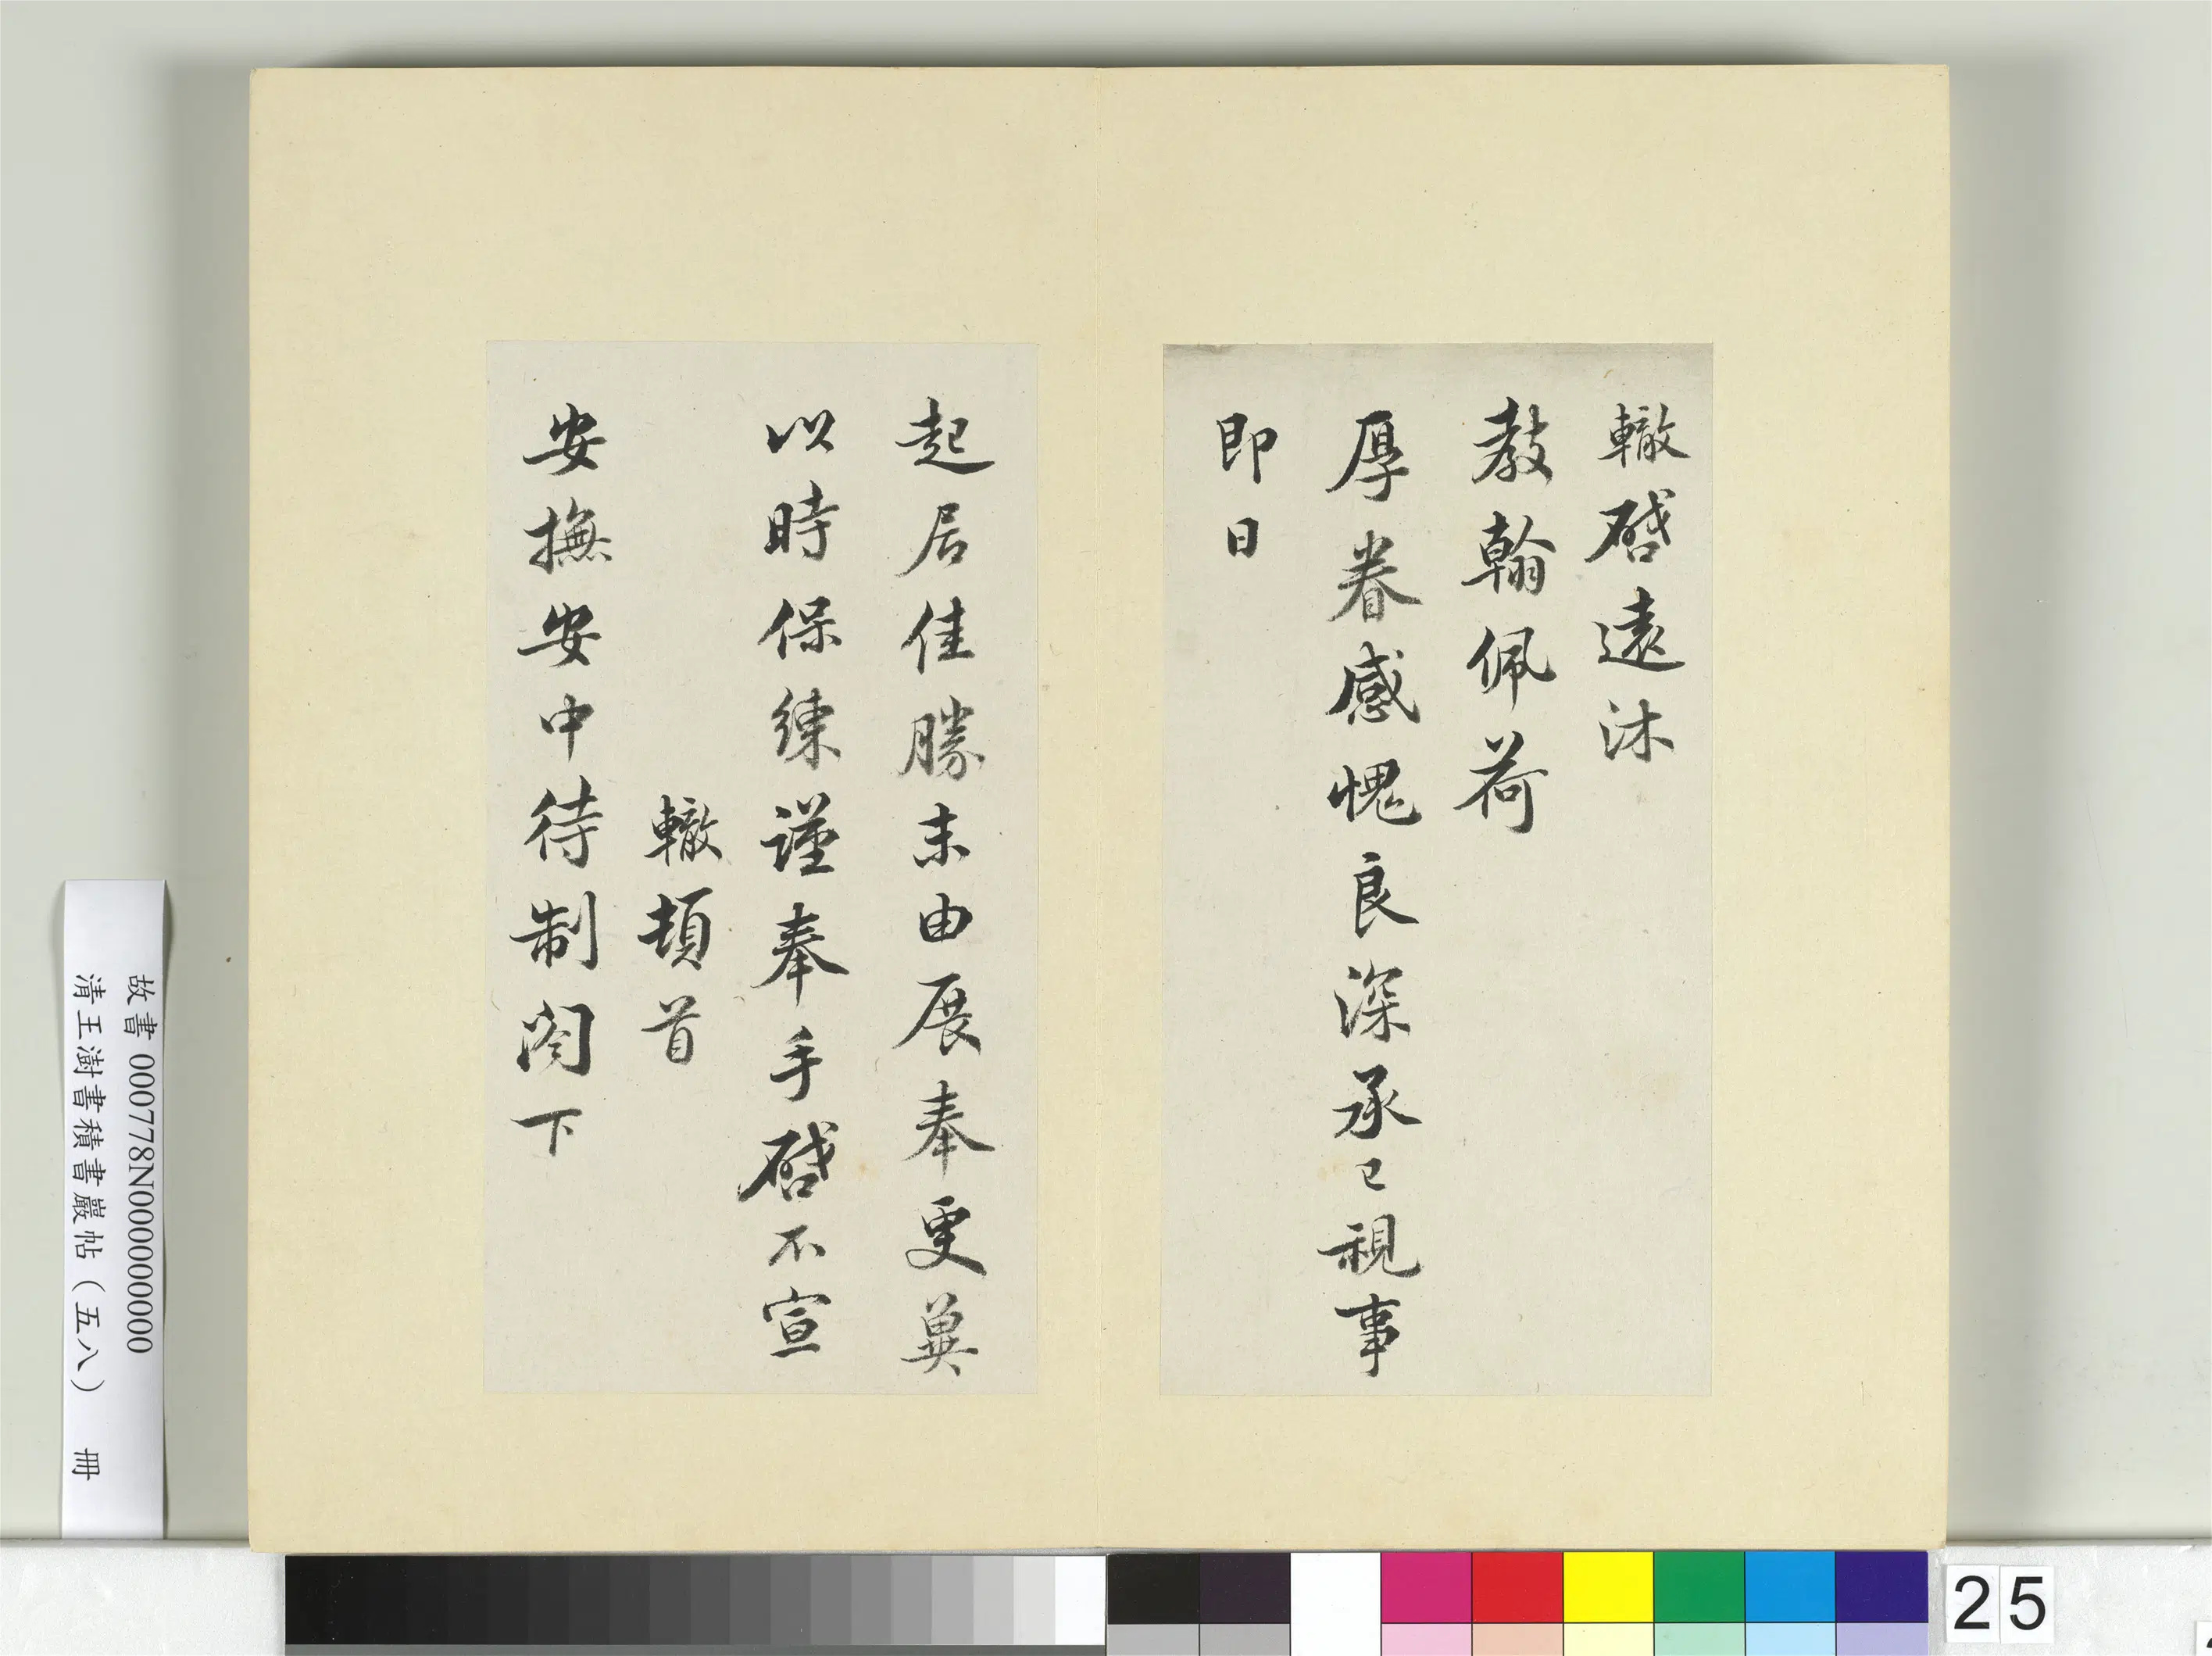 轍啓遠沐
教翰佩荷
厚眷感愧良深承已視事
即日
起居佳勝未由展奉更冀
以時保練謹奉手啓不宣
轍頓首
安撫安中待制閤下
故書 000778N000000000
清王澍書積書巖帖（五八） 冊
25